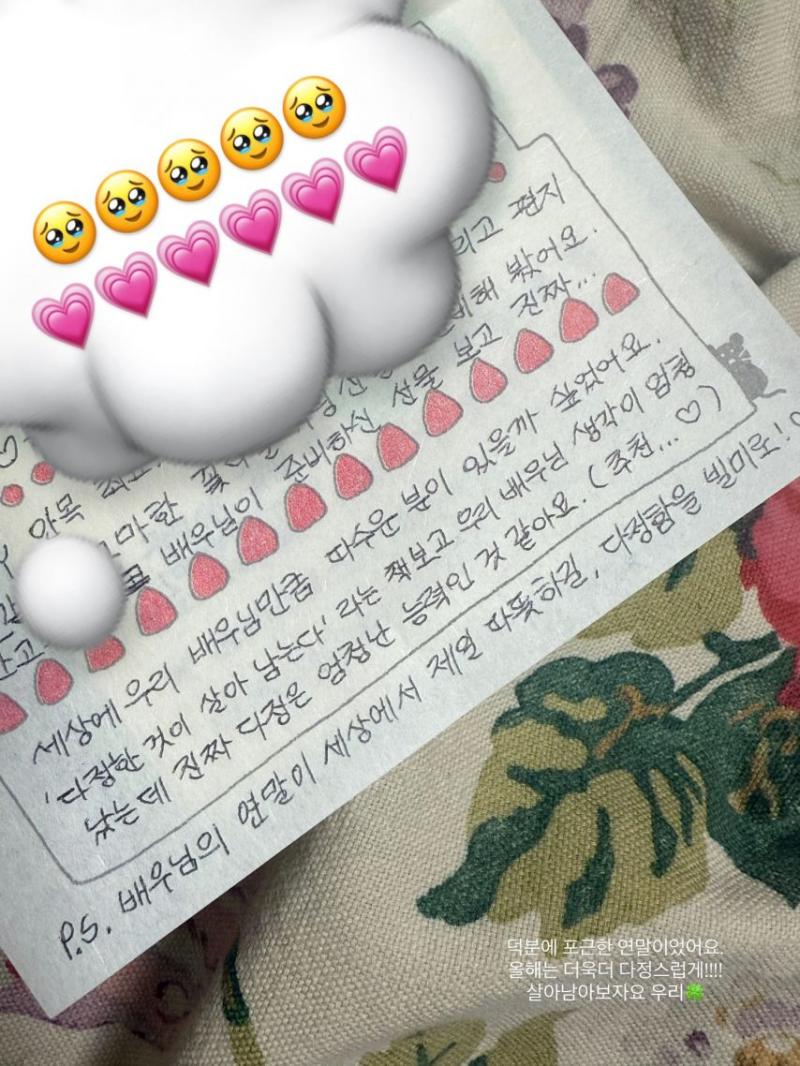 리고 편지
비해 봤어요.
준비하신 선물 보고 진짜...
배우님이
안목
꽃
세상에 우리 배우님만큼 따수운 분이 있을까 싶었어요.
'다정한 것이 살아 남는다' 라는 책보고 우리 배우님 생각이 엄청
났는데 진짜 다정은 엄청난 능력인 것 같아요. (추천...♡)
P.S. 배우님의 연말이 세상에서 제일 따뜻하길, 다정함을 빌미로!
덕분에 포근한 연말이었어요.
올해는 더욱더 다정스럽게!!!!
살아남아보자요 우리🍀